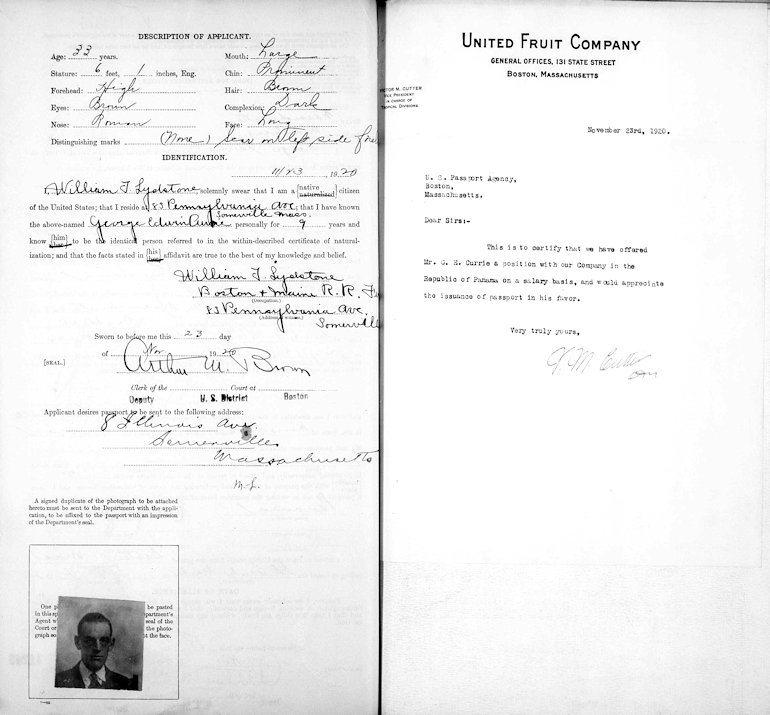 DESCRIPTION OF APPLICANT.
Age: 33 years. Mouth: Large
Stature: 6 feet, 1 inches, Eng. Chin: Prominent
Forehead: High Hair: Brown
Eyes: Brown Complexion: Dark
Nose: Roman Face: Long
Distinguishing marks (None) Scar on left side
IDENTIFICATION.
11/23, 1920
I, William T. Lydstone, solemnly swear that I am a {native naturalized} citizen
of the United States; that I reside at 83 Pennsylvania Ave.; that I have known
Somerville Mass.
the above-named George Edwin Currie personally for 9 years and
know {him} to be the identical person referred to in the within-described certificate of natural-
ization; and that the facts stated in {his} affidavit are true to the best of my knowledge and belief.
William T. Lydstone
Boston & Maine R. R.
(Occupation.)
83 Pennsylvania Ave.
(Address of witness.)
Somerville
Sworn to before me this 23 day
of Nov, 1920
[SEAL.] Arthur M. Brown
Clerk of the Court at
Deputy U. S. District Boston
Applicant desires passport to be sent to the following address:
8 Illinois Ave.
Somerville
Massachusetts
M-L.
A signed duplicate of the photograph to be attached
hereto must be sent to the Department with the appli-
cation, to be affixed to the passport with an impression
of the Department's seal.
One p be pasted
in this sp partment's
Agent w seal of the
Court or the photo-
graph so t the face.
UNITED FRUIT COMPANY
GENERAL OFFICES, 131 STATE STREET
BOSTON, MASSACHUSETTS
VICTOR M. CUTTER
VICE PRESIDENT
IN CHARGE OF
TROPICAL DIVISIONS
November 23rd, 1920.
U. S. Passport Agency,
Boston,
Massachusetts.
Dear Sirs:-
This is to certify that we have offered
Mr. G. E. Currie a position with our Company in the
Republic of Panama on a salary basis, and would appreciate
the issuance of passport in his favor.
Very truly yours,
V M Cutter